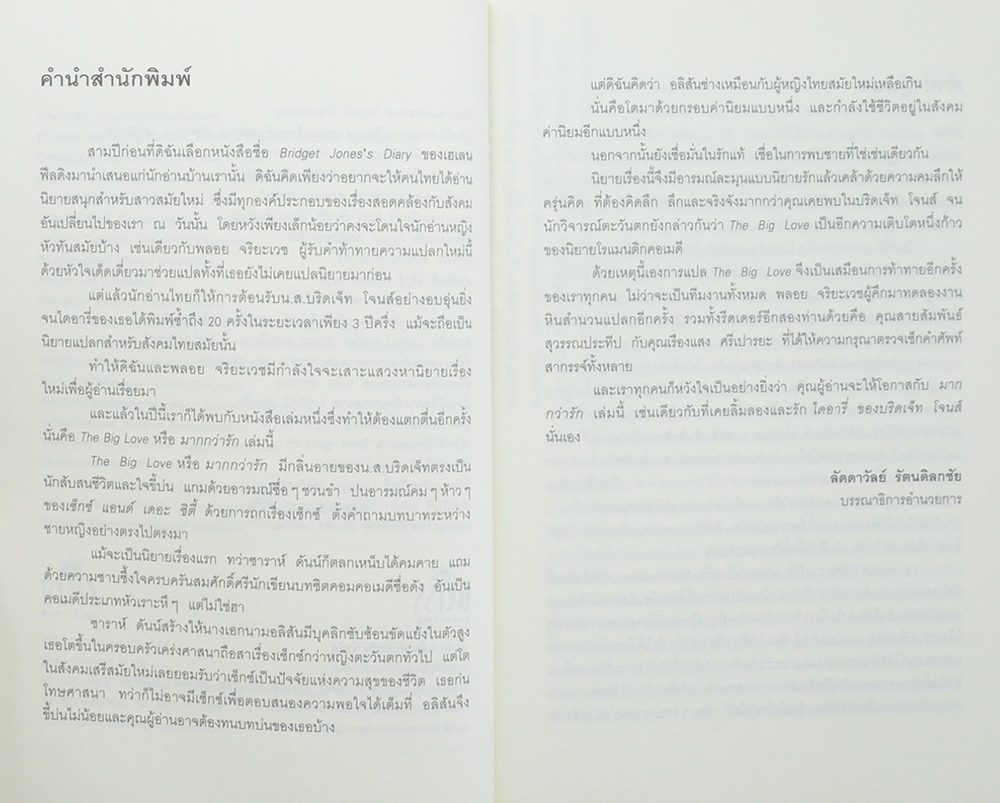 คำนำสำนักพิมพ์
สามปีก่อนที่ดิฉันเลือกหนังสือชื่อ Bridget Jones's Diary ของเฮเลน
ฟีลดิงมานำเสนอแก่นักอ่านบ้านเรานั้น ดิฉันคิดเพียงว่าอยากจะให้คนไทยได้อ่าน
นิยายสนุกสำหรับสาวสมัยใหม่ ซึ่งมีทุกองค์ประกอบของเรื่องสอดคล้องกับสังคม
อันเปลี่ยนไปของเรา ณ วันนั้น โดยหวังเพียงเล็กน้อยว่าคงจะโดนใจนักอ่านหญิง
หัวทันสมัยบ้าง เช่นเดียวกับพลอย จริยะเวช ผู้รับคำท้าทายความแปลกใหม่นี้
ด้วยหัวใจเด็ดเดี่ยวมาช่วยแปลทั้งที่เธอยังไม่เคยแปลนิยายมาก่อน
แต่แล้วนักอ่านไทยก็ให้การต้อนรับน.ส.บริดเจ็ท โจนส์อย่างอบอุ่นยิ่ง
จนไดอารี่ของเธอได้พิมพ์ซ้ำถึง 20 ครั้งในระยะเวลาเพียง 3 ปีครึ่ง แม้จะถือเป็น
นิยายแปลกสำหรับสังคมไทยสมัยนั้น
ทำให้ดิฉันและพลอย จริยะเวชมีกำลังใจจะเสาะแสวงหานิยายเรื่อง
ใหม่เพื่อผู้อ่านเรื่อยมา
และแล้วในปีนี้เราก็ได้พบกับหนังสือเล่มหนึ่งซึ่งทำให้ต้องแตกตื่นอีกครั้ง
นั่นคือ The Big Love หรือ มากกว่ารัก เล่มนี้
The Big Love หรือ มากกว่ารัก มีกลิ่นอายของน.ส.บริดเจ็ทตรงเป็น
นักสับสนชีวิตและใจขี้บ่น แกมด้วยอารมณ์ซื่อๆชวนขำ ปนอารมณ์คมๆห้าวๆ
ของเซ็กซ์ แอนด์ เดอะ ซิตี้ ด้วยการถกเรื่องเซ็กซ์ ตั้งคำถามบทบาทระหว่าง
ชายหญิงอย่างตรงไปตรงมา
แม้จะเป็นนิยายเรื่องแรก ทว่าซาราห์ ดันน์ก็ตลกเหน็บได้คมคาย แถม
ด้วยความซาบซึ้งใจครบครันสมศักดิ์ศรีนักเขียนบทซิตคอมคอเมดีชื่อดัง อันเป็น
คอเมดีประเภทหัวเราะหึๆ แต่ไม่ใช่ฮา
ซาราห์ ดันน์สร้างให้นางเอกนามอลิสันมีบุคลิกซับซ้อนขัดแย้งในตัวสูง
เธอโตขึ้นในครอบครัวเคร่งศาสนาถือสาเรื่องเซ็กซ์กว่าหญิงตะวันตกทั่วไป แต่โต
ในสังคมเสรีสมัยใหม่เลยยอมรับว่าเซ็กซ์เป็นปัจจัยแห่งความสุขของชีวิต เธอก่น
โทษศาสนา ทว่าก็ไม่อาจมีเซ็กซ์เพื่อตอบสนองความพอใจได้เต็มที่ อลิสันจึง
ขี้บ่นไม่น้อยและคุณผู้อ่านอาจต้องทนบทบ่นของเธอบ้าง
แต่ดิฉันคิดว่า อลิสันช่างเหมือนกับผู้หญิงไทยสมัยใหม่เหลือเกิน
นั่นคือโตมาด้วยกรอบค่านิยมแบบหนึ่ง และกำลังใช้ชีวิตอยู่ในสังคม
ค่านิยมอีกแบบหนึ่ง
นอกจากนั้นยังเชื่อมั่นในรักแท้ เชื่อในการพบชายที่ใช่เช่นเดียวกัน
นิยายเรื่องนี้จึงมีอารมณ์ละมุนแบบนิยายรักแล้วเคล้าด้วยความคมลึกให้
ครุ่นคิด ที่ต้องคิดลึก ลึกและจริงจังมากกว่าคุณเคยพบในบริดเจ็ท โจนส์ จน
นักวิจารณ์ตะวันตกยังกล่าวกันว่า The Big Love เป็นอีกความเติบโตหนึ่งก้าว
ของนิยายโรแมนติกคอเมดี
ด้วยเหตุนี้เองการแปล The Big Love จึงเป็นเสมือนการท้าทายอีกครั้ง
ของเราทุกคน ไม่ว่าจะเป็นทีมงานทั้งหมด พลอย จริยะเวชผู้คึกมาทดลองงาน
หินสำนวนแปลกอีกครั้ง รวมทั้งรีดเดอร์อีกสองท่านด้วยคือ คุณสายสัมพันธ์
สุวรรณประทีป กับคุณเรืองแสง ศรีเปารยะ ที่ได้ให้ความกรุณาตรวจเช็กคำศัพท์
สากรรจ์ทั้งหลาย
และเราทุกคนก็หวังใจเป็นอย่างยิ่งว่า คุณผู้อ่านจะให้โอกาสกับ มาก
กว่ารัก เล่มนี้ เช่นเดียวกับที่เคยลิ้มลองและรัก ไดอารี่ ของบริดเจ็ท โจนส์
นั่นเอง
ลัดดาวัลย์ รัตนดิลกชัย
บรรณาธิการอำนวยการ